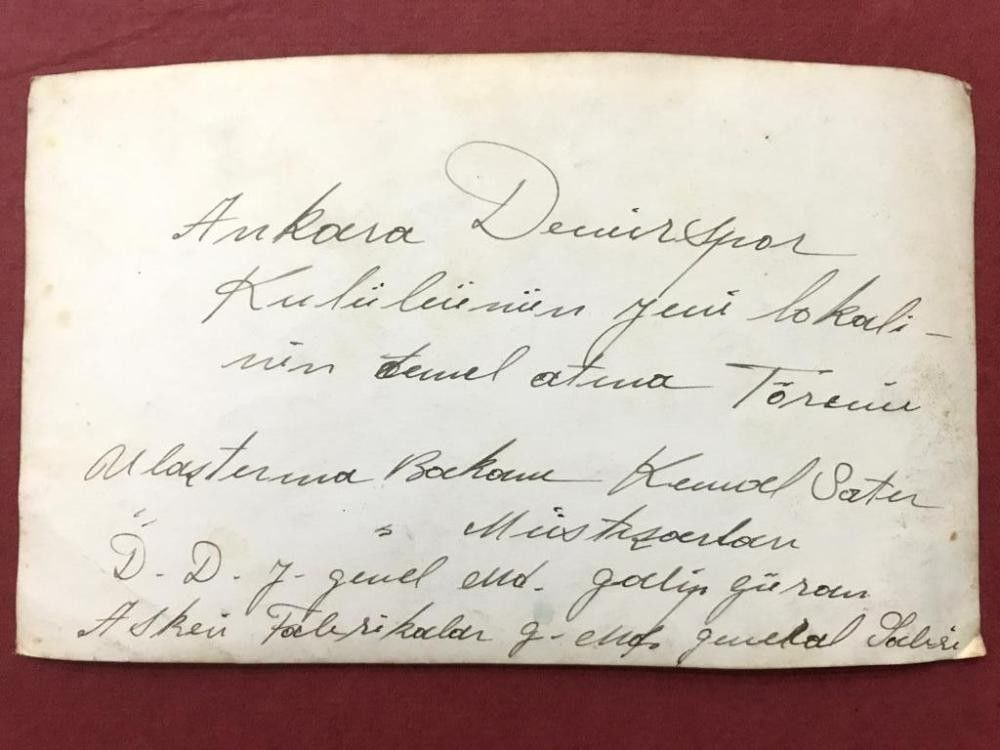 Ankara Demirspor
Kulübünün yeni lokali-
nin temel atma Töreni
Ulaştırma Bakanı Kemal Satır
" " Müsteşarları
D. D. Y. genel Md. galip güran
Askeri Fabrikalar g. Md. general Sabri